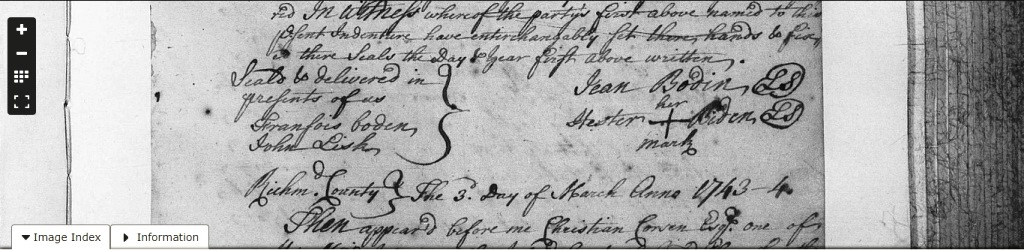 red In witness whereof the partys first above named to this
p̱sent Indenture have enterchangably set there hands & fixe
d there Seals the Day & year first above written.
Seals & delivered in
presents of us
Franfois boden
John Lisk
Jean Bodin LS
her
Hester + Boden LS
mark
Richmd. County } The 3d. Day of March Anno 1743-4.
Then appear'd before me Christian Corsen Esqr. one of
Image Index
Information